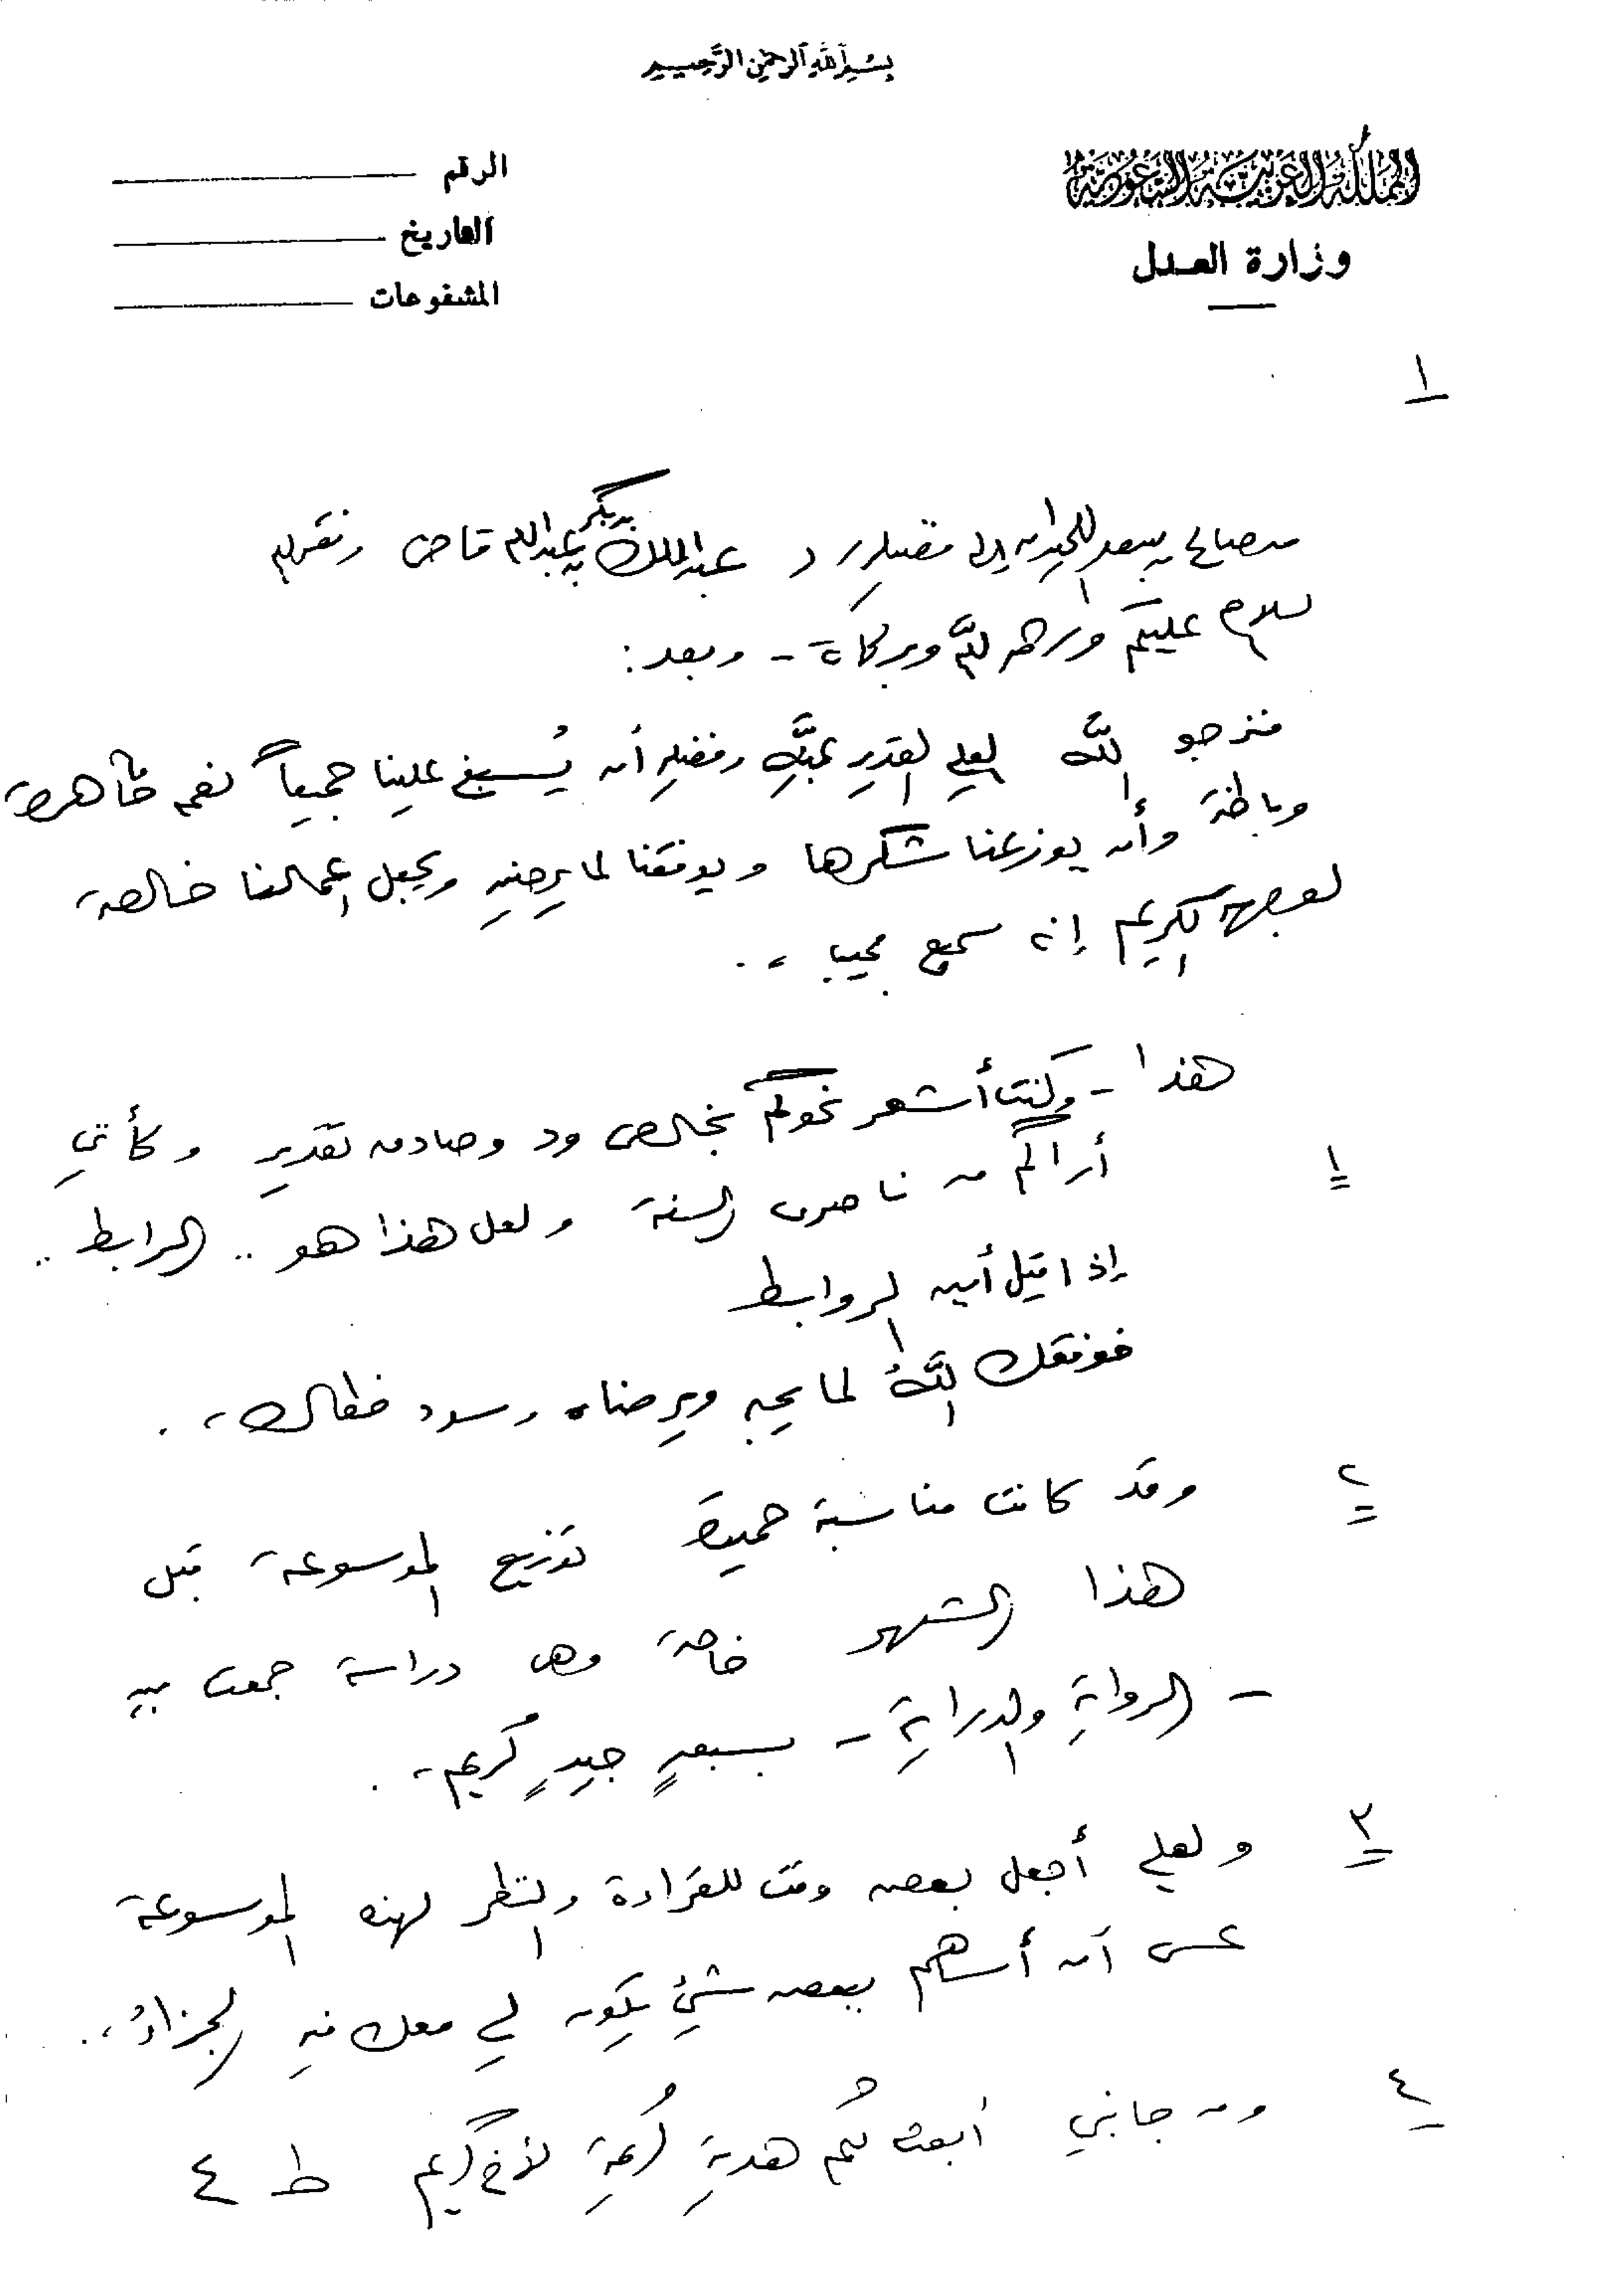 بسم الله الرحمن الرحيم
المملكة العربية السعودية
وزارة العدل
الرقم
التاريخ
المشفوعات
١
من صالح بن سعد اللحيدان إلى فضيلة د عبدالملك بن بكر بن عبدالله قاضي وفقه الله
سلام عليكم ورحمة الله وبركاته - وبعد :
فنرجو الله العلي القدير بمنِّه وفضله أن يُسبغ علينا جميعاً نعمه ظاهرة
وباطنة وأن يوزعنا شكرها ويوفقنا لما يرضيه ويجعل أعمالنا خالصة
لوجهه الكريم إنه سميع مجيب ،.
هذا - وكنت أشعر نحوكم بخالص ود وصادق تقدير وكأني
١ أراكم من ناصري السنة ولعل هذا هو .. الرابط ..
إذا قيل أين الروابط
فوفقك الله لما يحبه ويرضاه وسدد خطاك ،.
٢ وقد كانت مناسبة حميدة توزيع الموسوعة قبل
هذا الشهر خاصة وهي دراسة جمعت بين
- الرواية والدراية - بسبرٍ جيدٍ كريم ،.
٣ ولعلي أجعل بعض وقت للقراءة والنظر لهذه الموسوعة
عسى أن أساهم ببعض شيء يكون لي معك فيه الجزاءُ ،.
٤ ومن جانبي أبعث لكم هدية كريمة لأخ كريم ط ٤